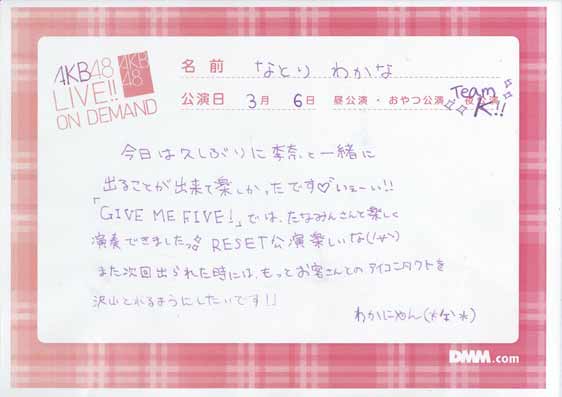 AKB48
LIVE!!
ON DEMAND
AKB
48
名前 なとり わかな
公演日 3月 6日 昼公演・おやつ公演・夜公演
Team
K!!
今日は久しぶりに李奈と一緒に
出ることが出来て楽しかったです♡いぇーい!!
「GIVE ME FIVE!」では、たなみんさんと楽しく
演奏できましたっ RESET公演楽しいな(
また次回出られた時には、もっとお客さんとのアイコンタクトを
沢山とれるようにしたいです!」
わかにゃん(*な*)
DMM.com